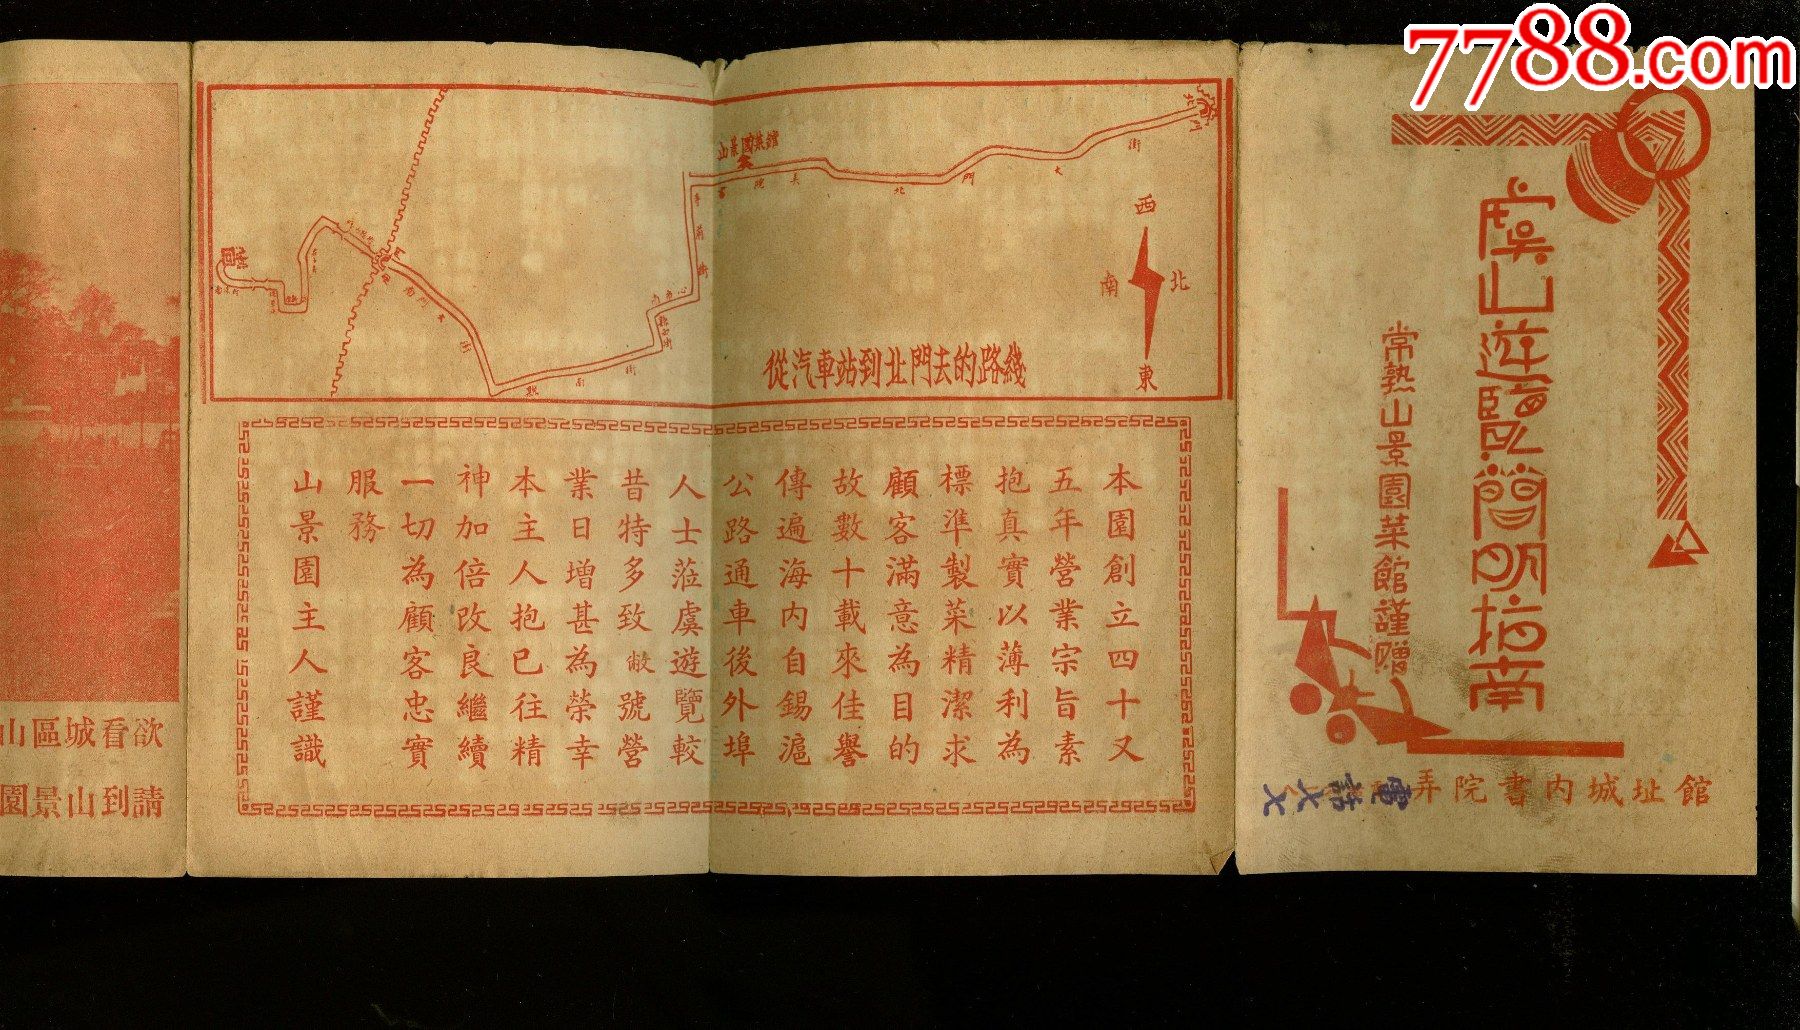 7788.com
虞山遊覽簡明指南
常熟山景園菜館謹贈
館址城内書院弄
電話
山景園菜館
書院弄
北門大街
寺前街
南門大街
西
北
南
東
從汽車站到北門去的路綫
本園創立四十又
五年營業宗旨素
抱真實以薄利為
標準製菜精潔求
顧客滿意為目的
故數十載來佳譽
傳遍海内自錫滬
公路通車後外埠
人士蒞虞遊覽較
昔特多致敝號營
業日增甚為榮幸
本主人抱已往精
神加倍改良繼續
一切為顧客忠實
服務
山景園主人謹識
欲看城區山
請到山景園